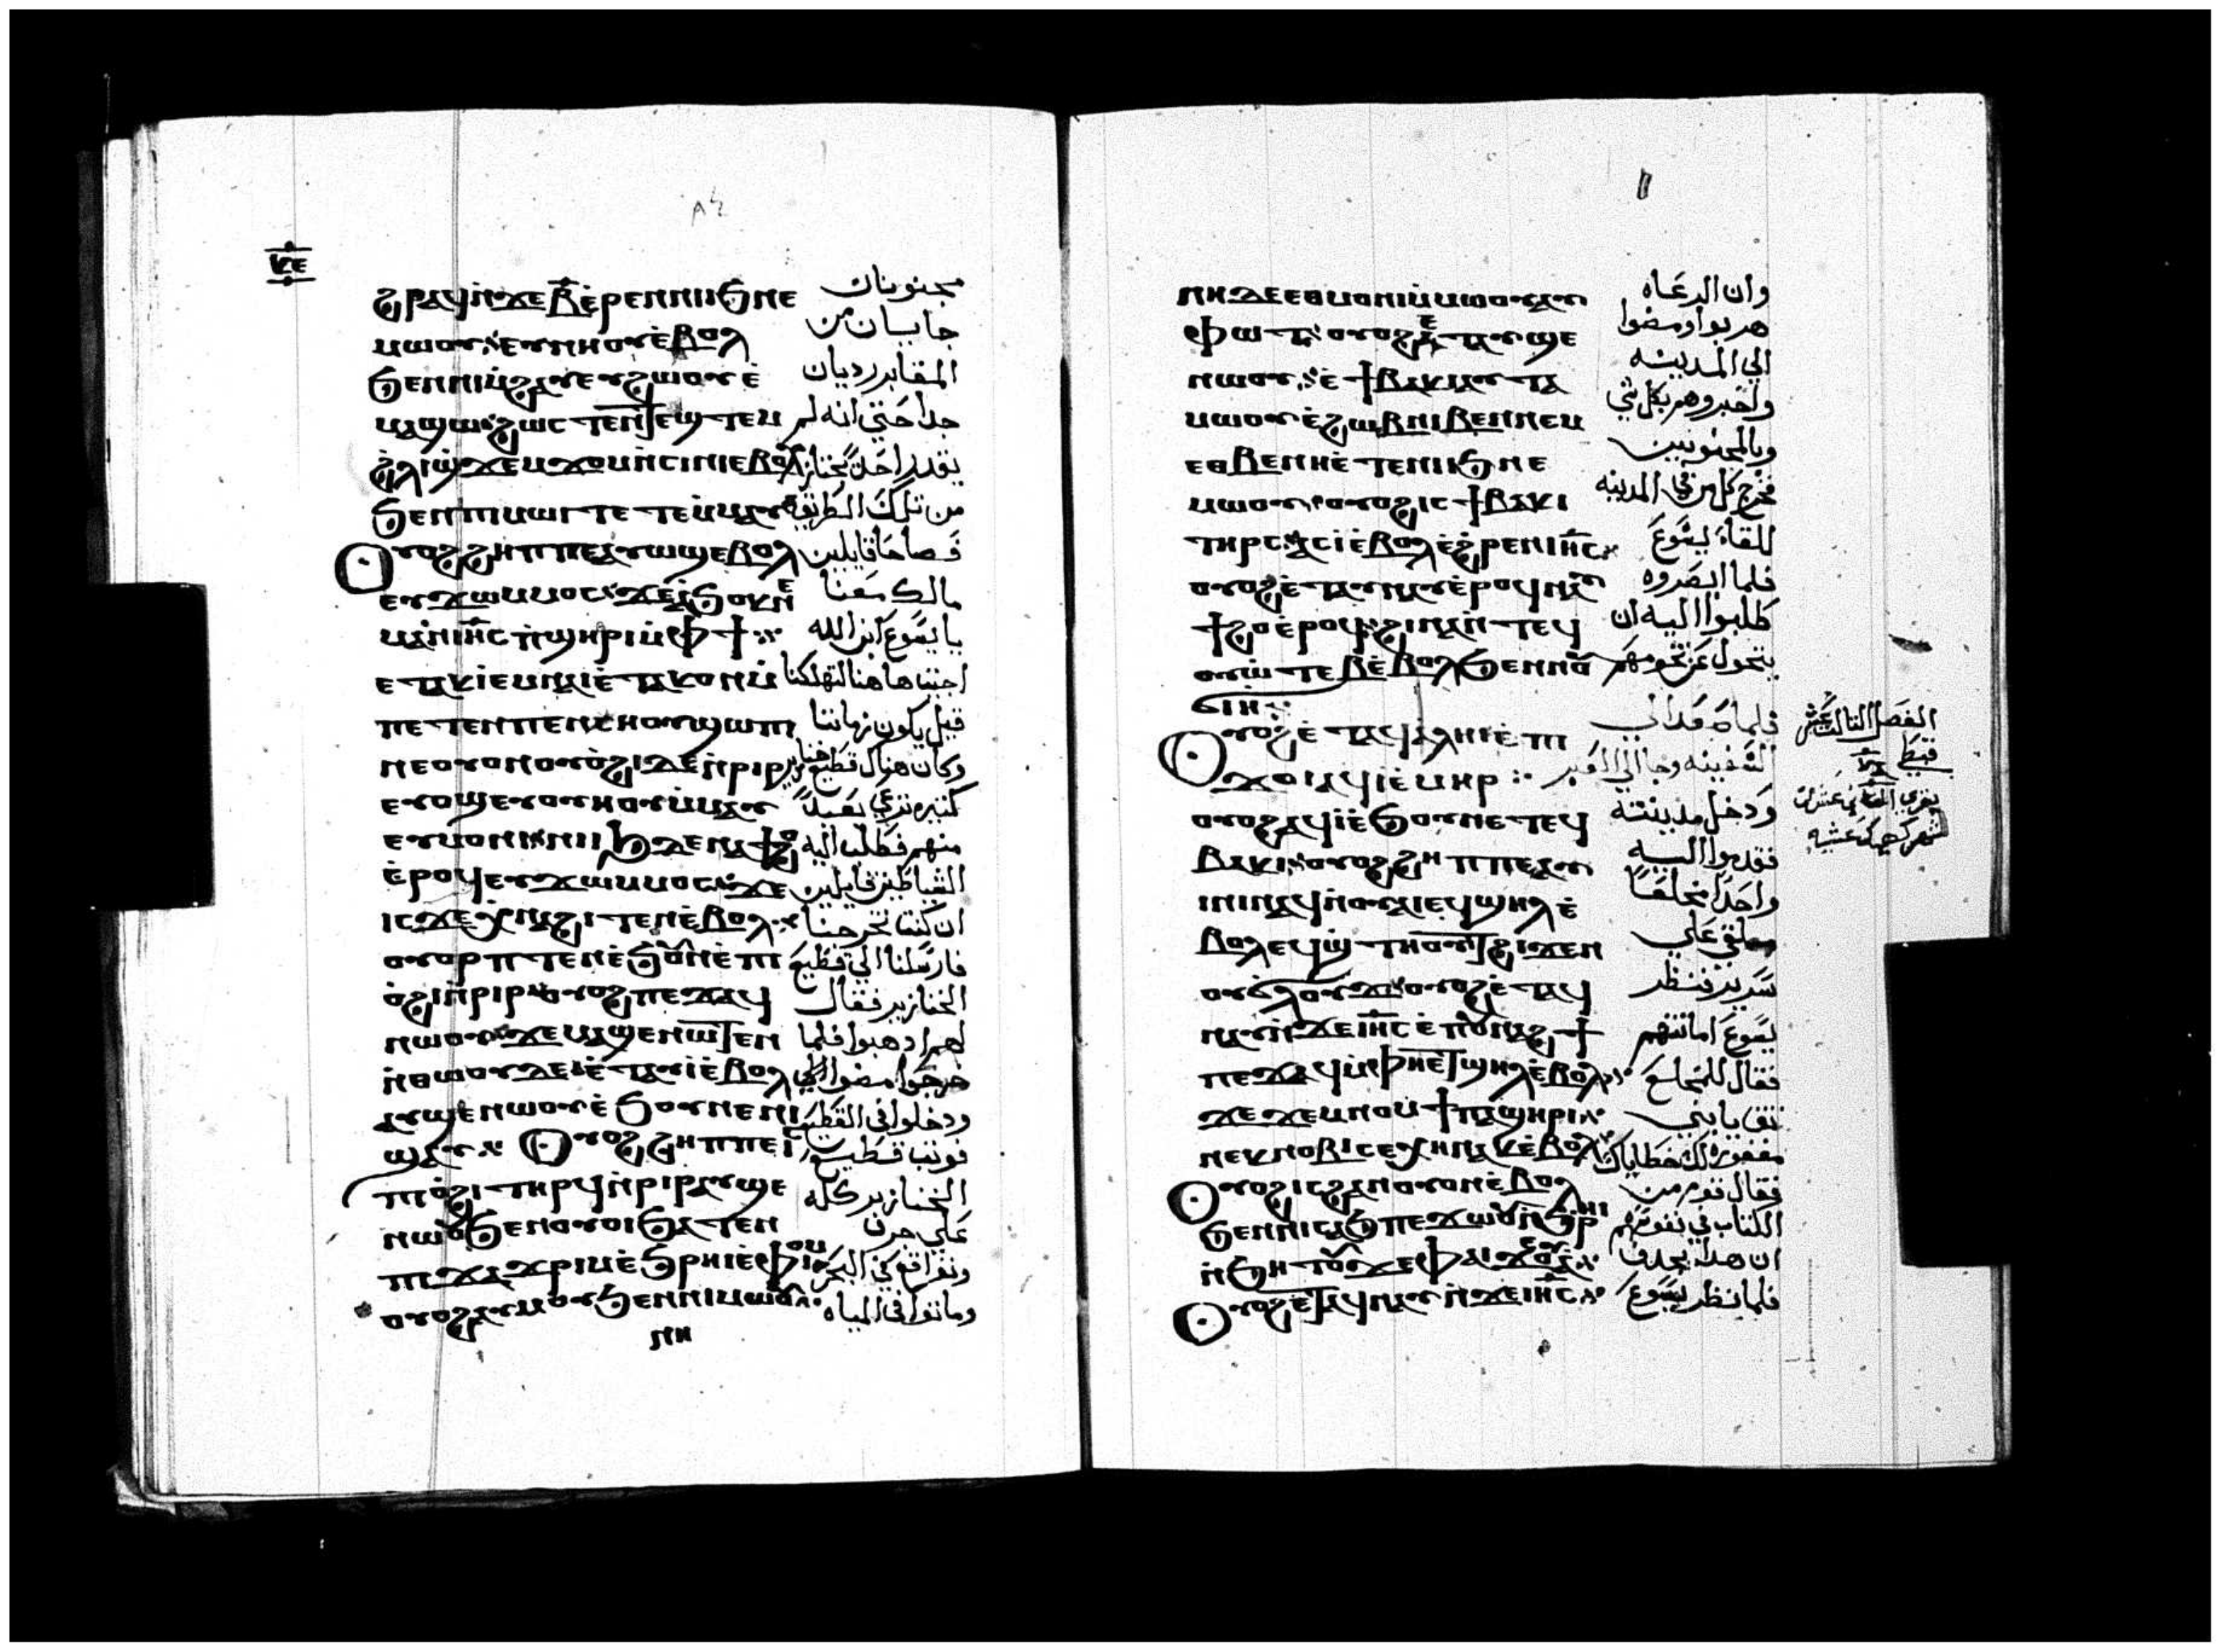 ⲕⲉ
ϩⲣⲁϥⲛ̀ϫⲉⲃ̅ⲉ̀ⲣⲉⲛⲛⲓⲓϧⲛⲉ مجنونان
ⲙⲱⲟⲩⲉⲩⲛⲏⲟⲩⲉ̀ⲃⲟⲗ جايبان من
ϧⲉⲛⲛⲓⲙ̀ϩⲁⲩⲉⲩϩⲱⲟⲩⲉ̀ المقابر رديان
ⲙⲁϣⲱ ϩⲱⲥⲧⲉⲛ̀ⲧⲉϣⲧⲉⲙ جدا حتى انه لم
ϩ̀ⲗⲓϣ̀ϫⲉⲙϫⲟⲙⲛ̀ⲥⲓⲛⲓⲉⲃⲟⲗ يقدر احد يجتاز
ϧⲉⲛⲡⲓⲙⲱⲓⲧⲉⲧⲉⲙ̀ⲙⲁⲩ من تلك الطريق
Ⲟⲩⲟϩϩⲏⲡⲡⲉⲁⲩⲱϣⲉⲃⲟⲗ فصاحا قايلين
ⲉⲩϫⲱⲙ̀ⲙⲟⲥ ϫⲉⲁ̀ϧⲟⲕⲛⲉ مالك معنا
ⲙⲁⲛ ⲓⲏ̅ⲥ ⲡ̀ϣⲏⲣⲓⲙ̀ⲫϯ يا يسوع ابن الله
ⲉⲧⲁⲕⲓⲉ̀ⲙⲛⲁⲓⲉ̀ⲧⲁⲕⲟⲛⲙ̀ اجيت هاهنا لتهلكنا
ⲡⲉⲧⲉⲛⲡⲉⲛⲥⲏⲟⲩϣⲱⲡⲓ قبل يكون زماننا
ⲛⲉⲟⲩⲟⲛⲟⲩⲟ̀ϩⲓⲇⲉⲛ̀ⲣⲓⲣ وكان هناك قطيع خنازير
ⲉⲩⲟϣⲉⲩⲟⲩⲏⲟⲩⲙ̀ⲙⲁⲩ كثيره ترعى بعيدا
ⲉⲩⲙⲟⲛⲓ ⲛⲓⲓϧⲇⲉⲛⲁⲩϯϩⲟ منهم فطلب اليه
ⲉ̀ⲣⲟϥⲉⲩϫⲱⲙ̀ⲙⲟⲥ ϫⲉ الشياطين قايلين
ⲓⲥϫⲉⲭ̀ⲛⲁϩⲓⲧⲉⲛⲉ̀ⲃⲟⲗ ان كنت تخرجنا
ⲟⲩⲟⲣⲡⲧⲉⲛⲉ̀ϧⲟⲩⲛⲉ̀ⲡⲓ فارسلنا الى قطيع
ⲟ̀ϩⲓⲛ̀ⲣⲓⲣ ⲟⲩⲟϩⲡⲉϫⲁϥ الخنازير فقال
ⲛⲱⲟⲩ ϫⲉⲙⲁϣⲉⲛⲱⲧⲉⲛ لهم اذهبوا فلما
ⲛ̀ⲑⲱⲟⲩⲇⲉⲉ̀ⲧⲁⲩⲓⲉ̀ⲃⲟⲗ خرجوا مضوا
ⲁⲩϣⲉⲛⲱⲟⲩⲉ̀ϧⲟⲩⲛⲉⲛⲓ ودخلوا في القطيع
ϣⲁⲩ Ⲟⲩⲟϩϩⲏⲡⲡⲉⲓⲥ فوثب قطيع
ⲡⲓⲟ̀ϩⲓⲧⲏⲣϥⲛ̀ⲣⲓⲣⲁⲩϣⲉ الخنازير كله
ⲛⲱⲟⲩϧⲉⲛⲟⲩⲟⲓϧⲁⲧⲉⲛ على جرن
ⲡⲓϫⲁϫⲣⲓⲙⲉ̀ϧⲣⲏⲓⲉ̀ⲫⲓⲟⲙ وتواقع في البحر
ⲟⲩⲟϩⲁⲩⲙⲟⲩϧⲉⲛⲛⲓⲙⲱⲟⲩ وماتوا في المياه
ⲛⲏ
ⲛⲏⲇⲉⲉⲑⲙⲟⲛⲓⲙ̀ⲙⲱⲟⲩⲁⲩ وان الرعاه
ⲫⲱⲧ ⲟⲩⲟϩⲉ̀ⲧⲁⲩϣⲉ هربوا ومضوا
ⲛⲱⲟⲩ ⲉ̀ϯⲃⲁⲕⲓⲁⲩⲧⲁ الى المدينه
ⲙⲱⲟⲩⲉ̀ϩⲱⲃⲛⲓⲃⲉⲛⲛⲉⲙ واخبروهم بكل شي
ⲉⲑⲃⲉⲛⲏⲉ̀ⲧⲉⲛⲓⲓϧⲛⲉ وبالمجنونين
ⲙⲱⲟⲩ ⲟⲩⲟϩⲓⲥϯⲃⲁⲕⲓ فخرج كل من في المدينه
ⲧⲏⲣⲥⲁⲥⲓⲉ̀ⲃⲟⲗⲉ̀ϩ̀ⲣⲉⲛⲓⲏ̅ⲥ للقاء يسوع
ⲟⲩⲟϩⲉ̀ⲧⲁⲩⲛⲁⲩⲉ̀ⲣⲟϥⲛⲁⲩ فلما ابصروه
ϯϩⲟⲉ̀ⲣⲟϥ ϩⲓⲛⲁⲛ̀ⲧⲉϥ طلبوا اليه ان
ⲟⲩⲱ̀ⲧⲉⲃⲉ̀ⲃⲟⲗϧⲉⲛⲛⲟⲩ يتحول عن تخومهم
ϭⲓⲏ
Ⲟⲩⲟϩⲉ̀ⲧⲁϥⲁ̀ⲗⲏⲓⲉ̀ⲡⲓ فلما صعد الى
ϫⲟⲓⲁϥⲓⲉ̀ⲙⲏⲣ السفينه وجا الى العبر
الفصل الثالث عشر
قبطي
يقرى الثاني عشر من
شهر كيهك عشيه
ⲟⲩⲟϩⲁϥⲓⲉ̀ϧⲟⲩⲛⲉⲧⲉϥ ودخل مدينته
ⲃⲁⲕⲓ ⲟⲩⲟϩϩⲏⲡⲡⲉⲁⲩ فقدموا اليه
ⲓⲛⲓⲛⲁϥⲛ̀ⲟⲩⲁⲓⲉϥϣⲏⲗⲉ̀ واحدا مخلعا
ⲃⲟⲗⲉϥϣ̀ⲧⲏⲟⲩⲧϩⲓϫⲉⲛ ملقى على
ⲟⲩϭⲗⲟϫ ⲟⲩⲟϩⲉ̀ⲧⲁϥ سرير فنظر
ⲛⲁⲩⲛ̀ϫⲉⲓⲏ̅ⲥⲉ̀ⲡⲟⲩⲛⲁϩϯ يسوع امانتهم
ⲡⲉϫⲁϥⲙ̀ⲫⲏⲉⲧϣⲏⲗⲉ̀ⲃⲟⲗ فقال للمخلع
ϫⲉϫⲉⲙⲛⲟⲙϯⲡⲁϣⲏⲣⲓ ثق يا بني
ⲛⲉⲕⲛⲟⲃⲓⲥⲉⲭⲏⲛⲁⲕⲉ̀ⲃⲟⲗ مغفوره لك خطاياك
Ⲟⲩⲟϩⲓⲥϩⲁⲛⲟⲩⲟⲛⲉ̀ⲃⲟⲗ فقال قوم من
ϧⲉⲛⲛⲓⲥⲁϧⲡⲉϫⲱⲟⲩⲛ̀ϧⲣⲏⲓ الكتاب في نفوسهم
ⲛ̀ϧⲏⲧⲟⲩϫⲉⲫⲁⲓϫⲉⲟⲩⲁ̀ ان هذا يجدف
Ⲟⲩⲟϩⲉ̀ⲧⲁϥⲛⲁⲩⲛ̀ϫⲉⲓⲏ̅ⲥ فلما نظر يسوع